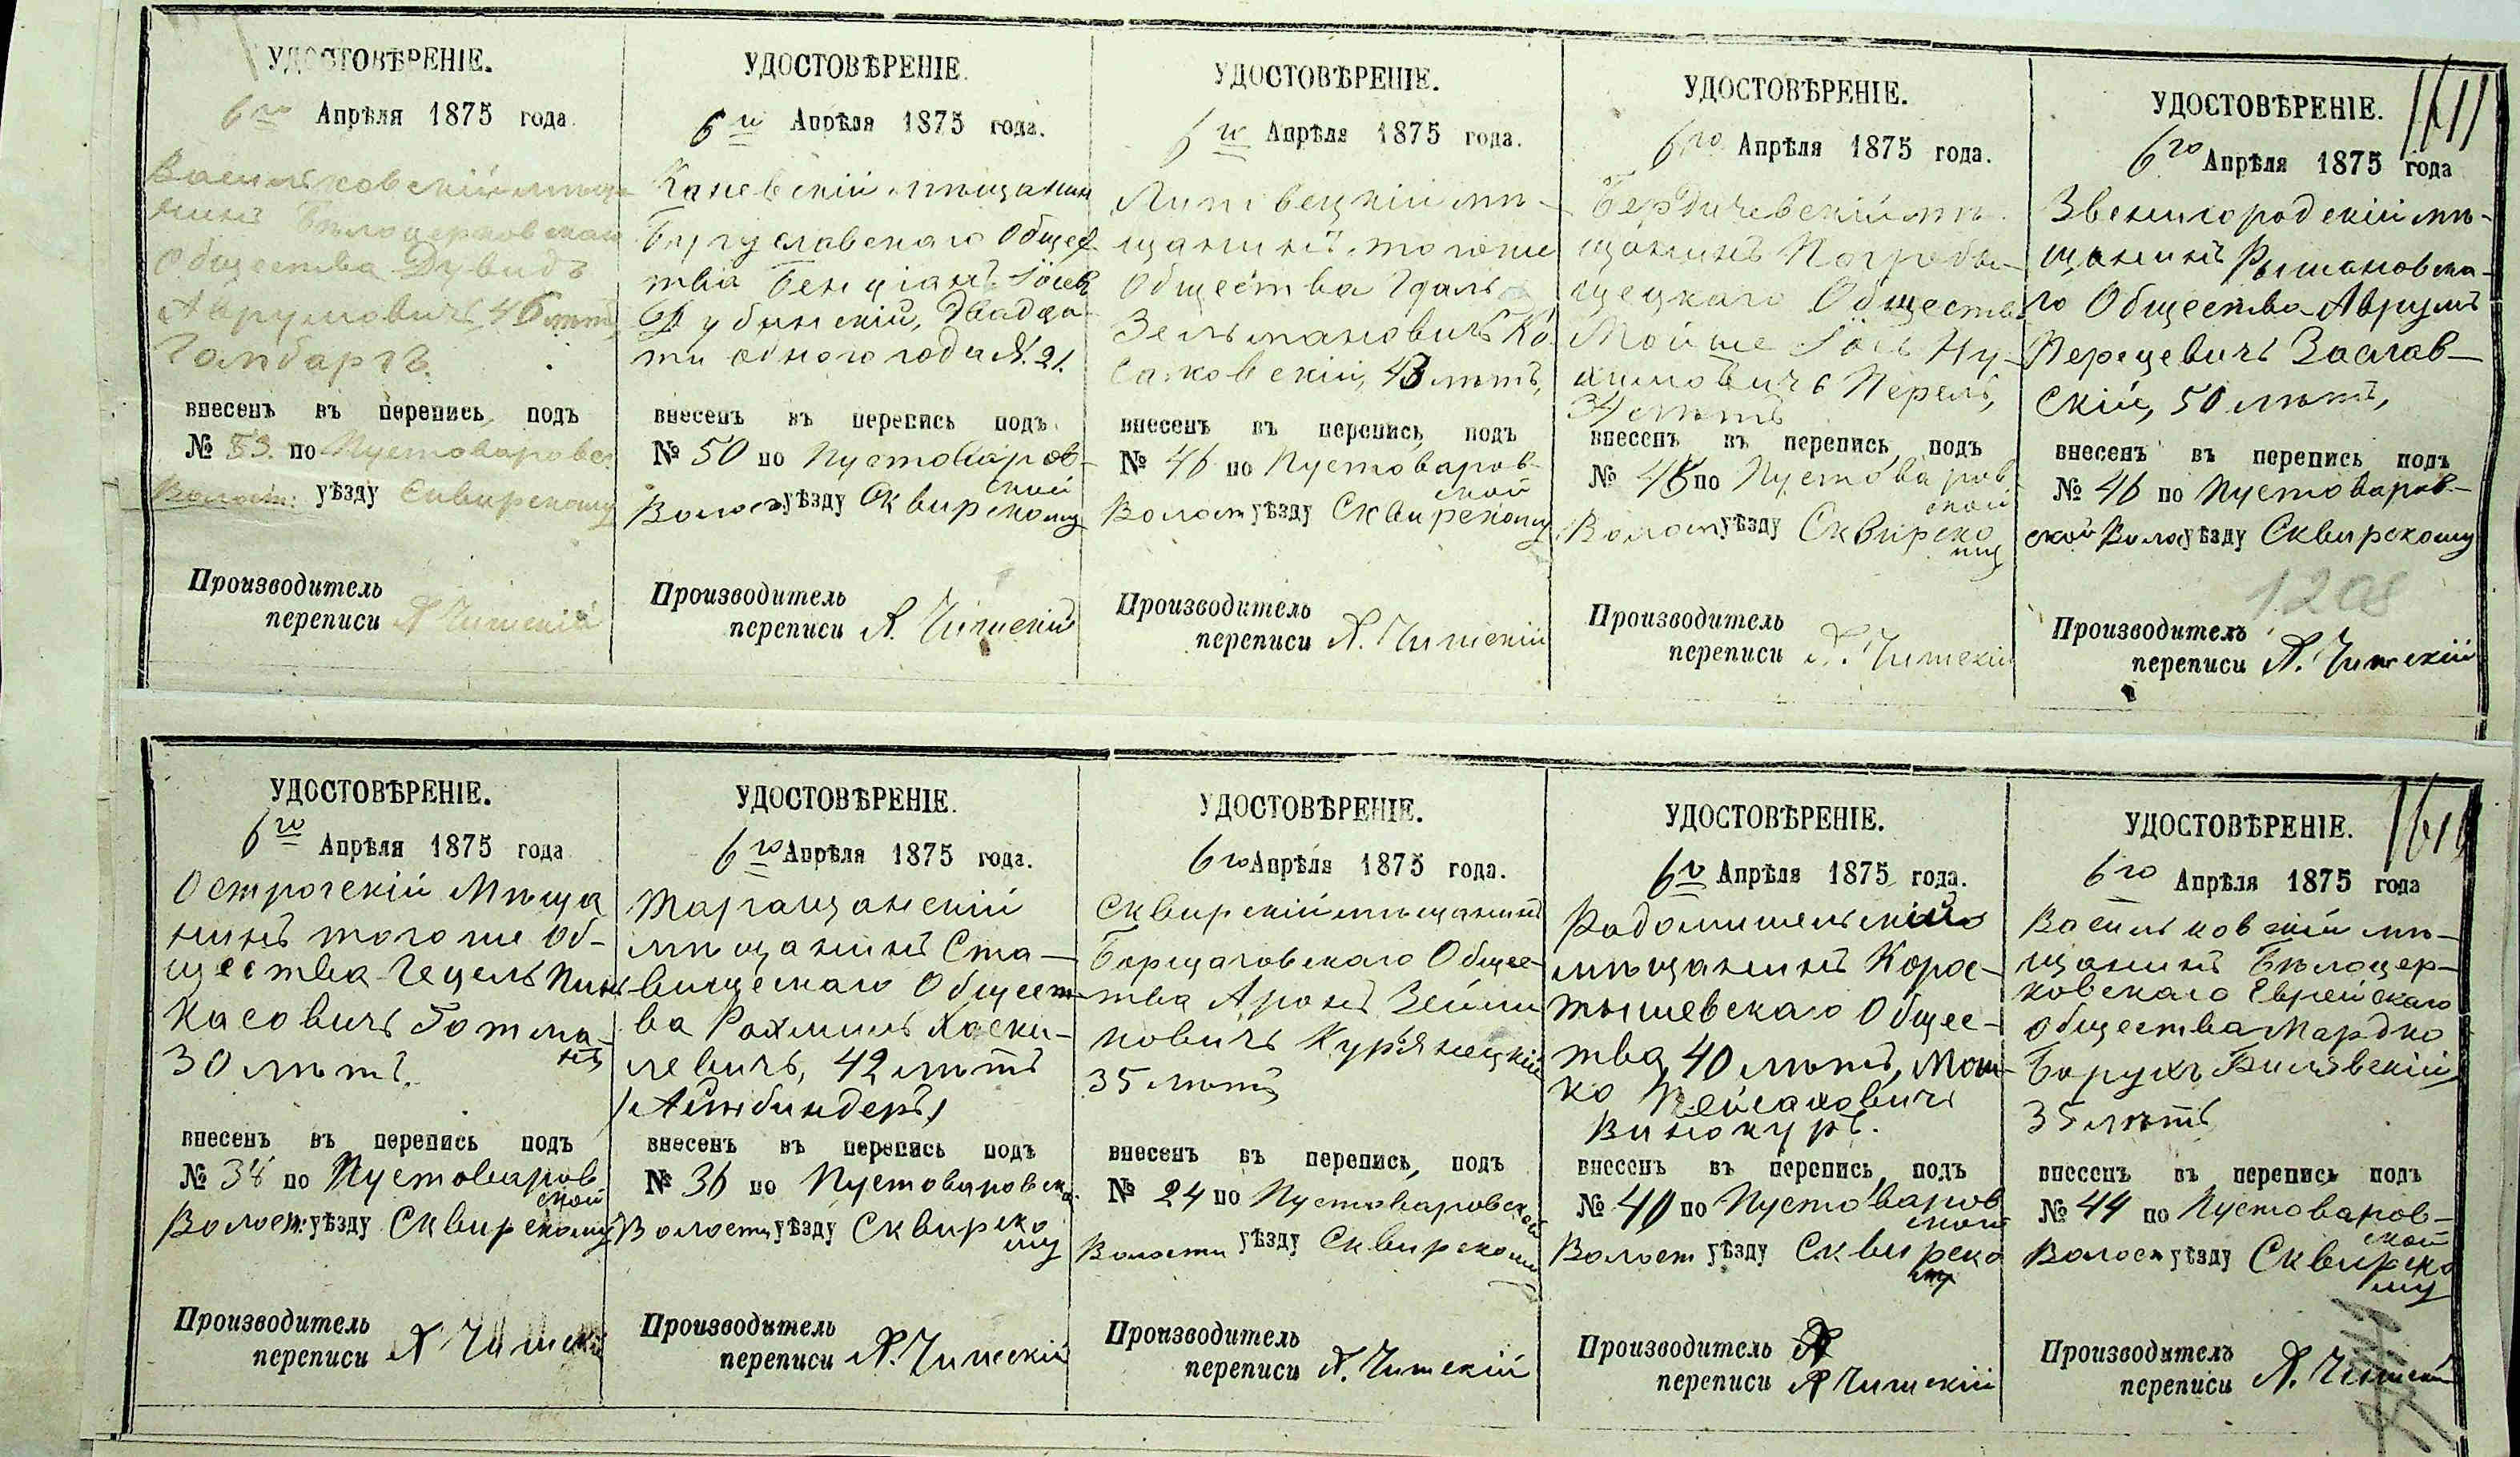 УДОСТОВѢРЕНІЕ.
6го Апрѣля 1875 года.
Васильковскій мѣща
нинъ Бѣлоцерковскаго
Общества Дувидъ
Аврумовичъ, 46 лѣтъ,
внесенъ въ перепись подъ
№ 53. по Пустоваровс.
Волост: уѣзду Сквирскому
Производитель
переписи А Чишскій
УДОСТОВѢРЕНІЕ.
6го Апрѣля 1875 года.
Каневскій мѣщанинъ
Богуславскаго Общес
тва Бенціанъ
Дубинскій, двадца
ти одного года Л. 21.
внесенъ въ перепись подъ
№ 50 по Пустоваров-
ской
Волост уѣзду Сквирскому
Производитель
переписи А. Чишскій
УДОСТОВѢРЕНІЕ.
6го Апрѣля 1875 года.
Липовецкій мѣ-
щанинъ, тогоже
Общества Гдаль
Зельмановичъ Ко
саковскій, 43 лѣтъ,
внесенъ въ перепись, подъ
№ 46 по Пустоваров-
ской
Волост уѣзду Сквирскому
Производитель
переписи А. Чишскій
УДОСТОВѢРЕНІЕ.
6го Апрѣля 1875 года.
Бердичевскій мѣ-
щанинъ Погребы-
щецкаго Общества
Мойше Іось Ну-
химовичъ Перель,
34 лѣтъ
внесенъ въ перепись, подъ
№ по Пустоваров
ской
Волост уѣзду Сквирско
му
Производитель
переписи А. Чишскій
1611
УДОСТОВѢРЕНІЕ.
6го Апрѣля 1875 года
Звенигородскій мѣ-
щанинъ Рыжановска-
го Общества Аврумъ
Перцевичъ Заслав-
скій, 50 лѣтъ,
внесенъ въ перепись подъ
№ 46 по Пустоваров-
ской Воло уѣзду Сквирскому
1208
Производитель
переписи А. Чишскій
УДОСТОВѢРЕНІЕ.
6го Апрѣля 1875 года
Острогскій Мѣща
нинъ того же Об-
щества Гецель Пин
касовичъ Готма
нъ
30 лѣтъ.
внесенъ въ перепись подъ
№ 38 по Пустоваров
ской
Волост: уѣзду Сквирскому
Производитель
переписи А Чишскій
УДОСТОВѢРЕНІЕ.
6го Апрѣля 1875 года.
Таращанскій
мѣщанинъ Ста-
вищскаго Общест
ва Рахмиль Хаски-
левичъ, 42 лѣтъ
внесенъ въ перепись подъ
№ 36 по Пустоваровско
Волости уѣзду Сквирско
му
Производитель
переписи А. Чишскій
УДОСТОВѢРЕНІЕ.
6го Апрѣля 1875 года.
Сквирскій мѣщанинъ
Борщаговскаго Общес-
тва Аронъ Зейли
ковичъ Курянецкій
35 лѣтъ
внесенъ въ перепись, подъ
№ 24 по Пустоваровской
Волости уѣзду Сквирскому
Производитель
переписи А. Чишскій
УДОСТОВѢРЕНІЕ.
6го Апрѣля 1875 года.
Радомишельскій
мѣщанинъ Корос-
тышевскаго Общес-
тва, 40 лѣтъ, Мош-
ко Пейсаховичъ
Винокуръ.
внесенъ въ перепись, подъ
№ 40 по Пустоваров
ской
Волост уѣзду Сквирско
му
Производитель А
переписи А Чишскій
1610
УДОСТОВѢРЕНІЕ.
6го Апрѣля 1875 года
Васильковскій мѣ-
щанинъ Бѣлоцер-
ковскаго Еврейскаго
Общества Мардко
Борухъ Билявскій,
35 лѣтъ
внесенъ въ перепись подъ
№ 44 по Пустоваров-
ской
Волост уѣзду Сквирско
му
Производитель
переписи А. Чишскій